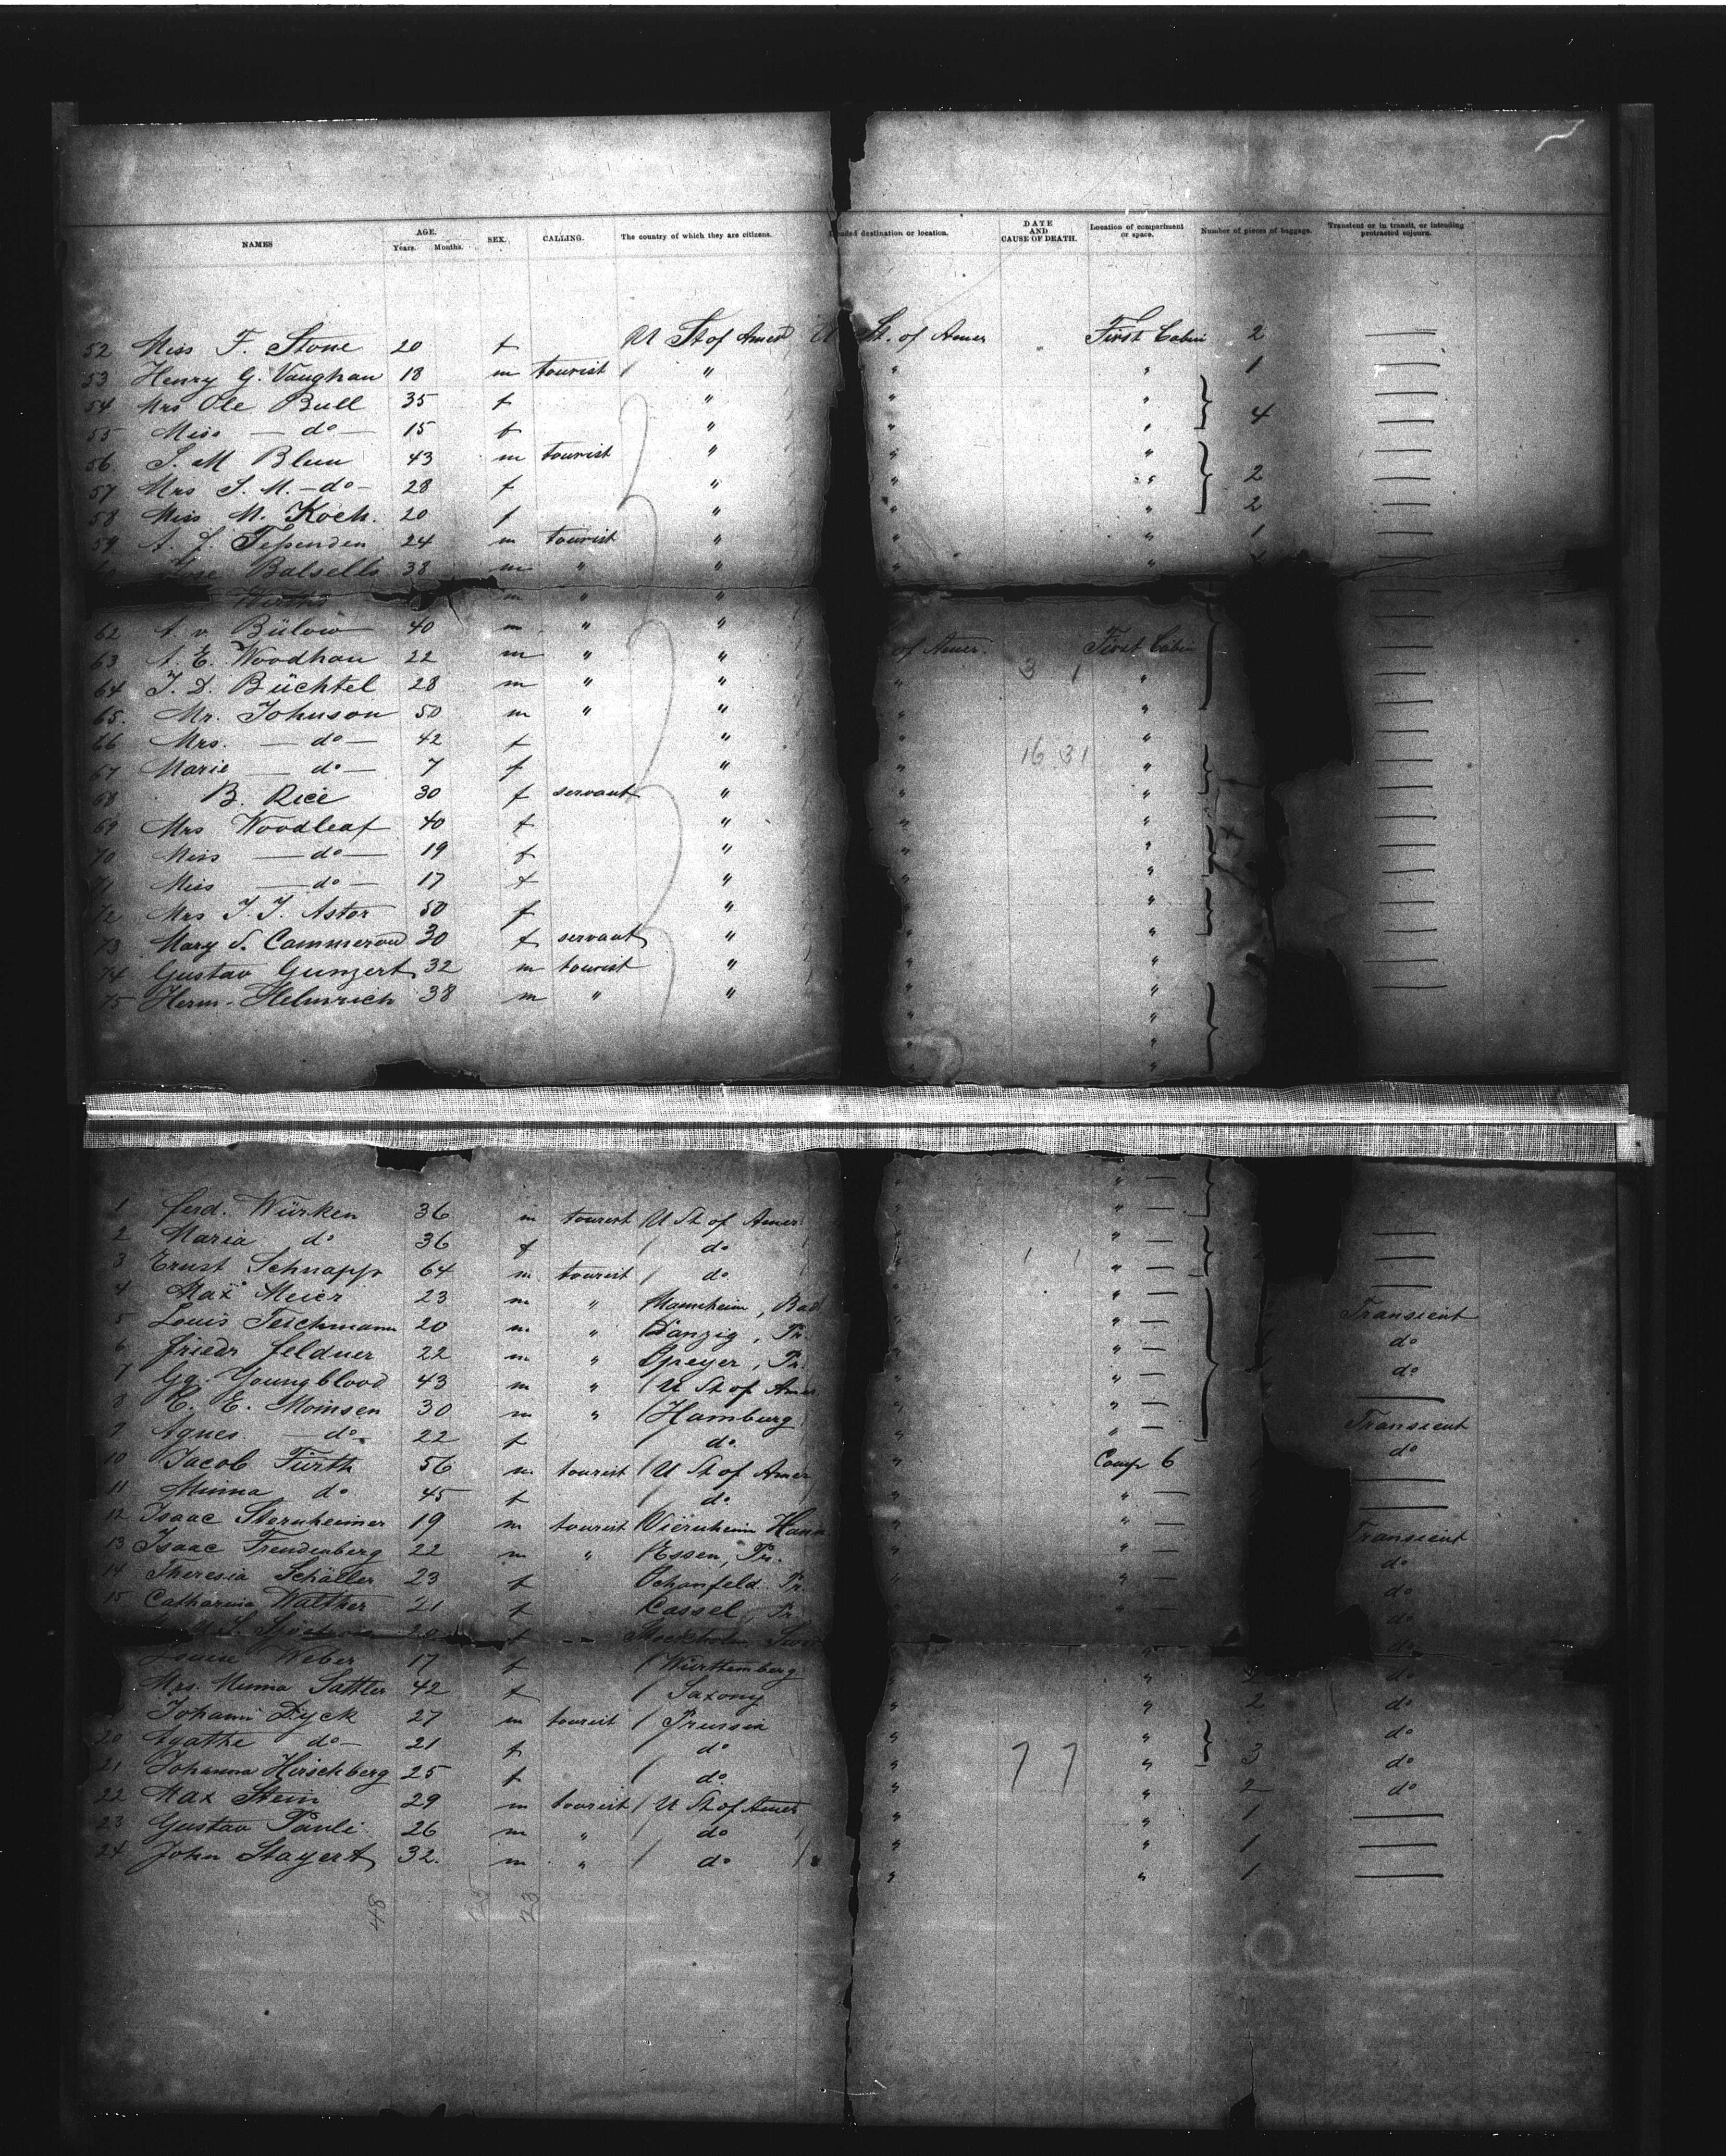 NAMES AGE. Years. Months. SEX. CALLING. The country of which they are citizens. destination or location. DATE AND CAUSE OF DEATH. Location of compartment or space. Number of pieces of baggage. Transient or in transit, or intending protracted sojourn.
52 Miss F. Stone 20 f U St of Amer U St. of Amer First Cabin 2 —
53 Henry G. Vaughan 18 m tourist " " " 1 —
54 Mrs Ole Bull 35 f " " " 4 —
55 Miss — do — 15 f " " " —
56. S. M Blum 43 m tourist " " " —
57 Mrs S. M. — do — 28 f " " " 2 —
58 Miss M. Koch. 20 f " " " 2 —
59 A. J. Fessenden 24 m tourist " " " 1 —
Jose Balsells 38 m " " " " —
Wirths m " " —
62 A. v. Bülow 40 m " " of Amer. First Cabin —
63 A. E. Woodhau 22 m " " " 3 1 " —
64 J. D. Büchtel 28 m " " " " —
65. Mr. Johnson 50 m " " " " —
66 Mrs. — do — 42 f " " 16 31 " —
67 Marie — do — 7 f " " " —
68 B. Rice 30 f servant " " " —
69 Mrs Woodleaf 40 f " " " —
70 Miss — do — 19 f " " " —
71 Miss — do — 17 f " " " —
72 Mrs J. J. Astor 50 f " " " —
73 Mary S. Cammerow 30 f servant " " " —
74 Gustav Gunzert 32 m tourist " " " —
75 Herm. Helmrich 38 m " " " " —
1 Ferd. Würken 36 m tourist U St of Amer " " — —
2 Maria do 36 f do " " — —
3 Ernst Schnapp 64 m tourist do 1 1 " — —
4 Max Meier 23 m " Mannheim, Bad " " — Transient
5 Louis Teichmann 20 m " Danzig, Pr. " " — do
6 Friedr Feldner 22 m " Speyer, Pr. " " — do
7 Gg. Youngblood 43 m " U St of Amer " " — —
8 C. E. Momsen 30 m " Hamburg " " — Transient
9 Agnes — do — 22 f do " " — do
10 Jacob Fürth 56 m tourist U St of Amer " Comp 6 —
11 Minna do 45 f do " " — —
12 Isaac Sternheimer 19 m tourist Viernheim " " — Transient
13 Isaac Freudenberg 22 m " Essen, Pr. " " — do
14 Theresia Schäller 23 f Schonfeld Pr. " " — do
15 Catharina Walther 21 f Cassel, Pr. " " — do
20 f Stockholm, do
Louise Weber 17 f Württemberg " " 2 do
Mrs. Minna Sattler 42 f Saxony " " 2 do
Johann Dyck 27 m tourist Prussia " " do
20 Agathe do — 21 f do " 7 7 " 3 do
21 Johanna Hirschberg 25 f do " " 2 do
22 Max Stein 29 m tourist U St of Amer " " 1 —
23 Gustav Pauli 26 m " do " " 1 —
24 John Stayert 32. m " do " " 1 —
48 25 23